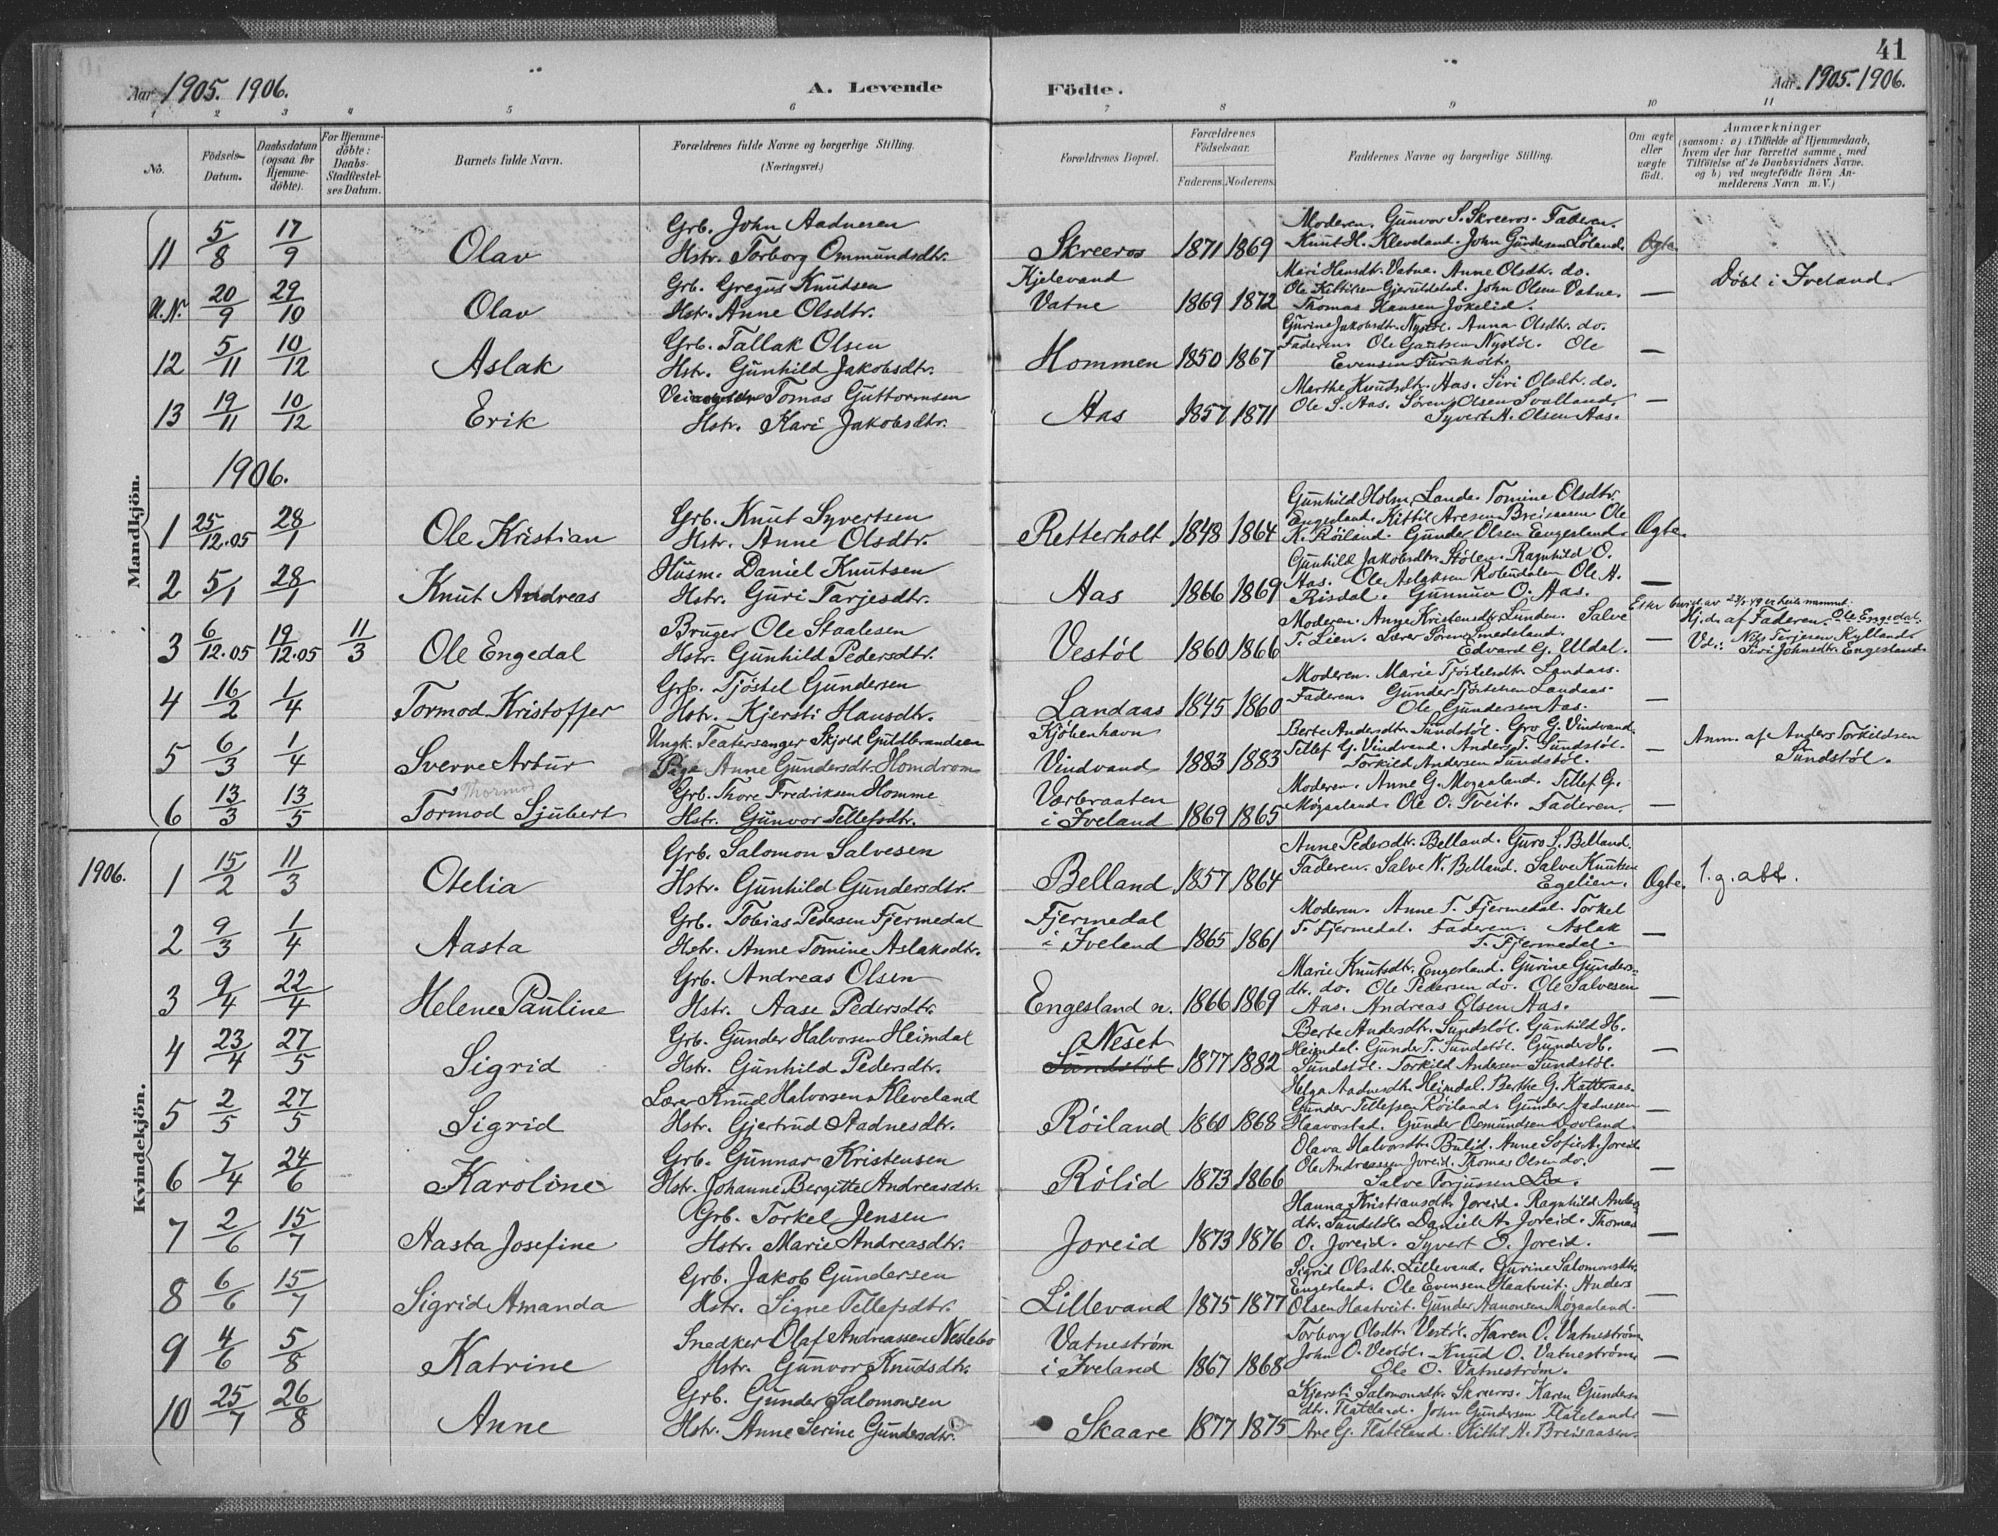 41
Aar 1905. 1906. A. Levende Födte. Aar 1905. 1906.
1 2 3 4 5 6 7 8 9 10 11
No. Födsels-Datum. Daabsdatum (ogsaa for Hjemme-döbte). For Hjemme-döbte: Daabs-Stadfæstel-ses Datum. Barnets fulde Navn. Forældrenes fulde Navne og borgerlige Stilling. (Næringsvei.) Forældrenes Bopæl. Forældrenes Födselsaar. Faderens. Moderens. Faddernes Navne og borgerlige Stilling. Om ægte eller uægte födt. Anmærkninger (saasom: a) i Tilfælde af Hjemmedaab, hvem der har forrettet samme, med Tilföielse af to Daabsvidners Navne. og b) ved uægtefödte Börn An-melderens Navn m. V.)
Mandkjön.
11 5/8 17/9 Olav Grb. John Aadnesen Hstr. Torborg Ommundsdtr. Skreeros 1871 1869 Moderen. Gunvor S. Skreeros. Faderen. Knut H. Kleveland. John Gundersen Löland. Ægte.
U.N. 20/9 29/10 Olav Grb. Gregus Knudsen Hstr. Anne Olsdtr. Kjetevand Vatne 1869 1872 Mari Hansdtr. Vatne. Anne Olsdtr. do. John Olsen Vatne. Thomas Hansen Jökelid. — Döbt i Iveland.
12 5/11 10/12 Aslak Grb. Tallak Olsen Hstr. Gunhild Jakobsdtr. Hommen 1850 1867 Gurine Jakobsdtr. Nystöl. Anna Olsdtr. do. Faderen. Ole Gautsen Nystöl. Ole Evensen Furuholt. —
13 19/11 10/12 Erik Tomas Guttormsen Hstr. Kari Jakobsdtr. Aas 1857 1871 Marthe Knudsdtr. Aas. Siri Olsdtr. do. Ole S. Aas. Sören Olsen Svalland. Syvert A. Olsen Aas. —
1906.
1 25/12.05 28/1 Ole Kristian Grb. Knut Syvertsen Hstr. Anne Olsdtr. Retterholt 1848 1864 Gunhild Holm, Lande. Tomine Olsdtr. Engesland. Kittil Aresen Breisaasen Ole K. Röiland. Gunder Olsen Engesland. Ægte.
2 5/1 28/1 Knut Andreas Husm. Daniel Knutsen Hstr. Guri Tarjesdtr. Aas 1866 1869 Gunhild Jakobsdtr. Stölen. Ragnhild O. Aas. Ole Aslaksen Robudalen Ole A. Risdal. Gunnuv O. Aas. —
3 6/12.05 19/12.05 11/3 Ole Engedal Bruger Ole Staalesen Hstr. Gunhild Pedersdtr. Vestöl 1860 1866 Moderen. Anne Kristensdtr. Lunden. Salve T. Lien. Lærer Sören Smedesland. Edvard G. Uldal. — Hj.d. af Faderen. Ole Engedal. Vd: Nils Terjesen Kylland. Siri Johnsdtr. Engesland.
4 16/2 1/4 Tormod Kristoffer Grb. Tjöstel Gundersen Hstr. Kjersti Hansdtr. Landaas 1845 1860 Moderen. Marie Tjöstelsdtr. Landaas. Faderen. Gunder Tjöstelsen Landaas. Ole Gundersen Aas. —
5 6/3 1/4 Sverre Artur Ungk. Teatersanger Skjold Guldbrandsen Pige Anne Gundersdtr. Homdrom Kjöbenhavn Vindvand 1883 1883 Berte Andersdtr. Sundstöl. Gro G. Vindvand. Tellef G. Vindvand. Anders T. Sundstöl. Torkild Andersen Sundstöl. — Anm. af Anders Torkildsen Sundstöl.
6 13/3 13/5 Tormod Sjubert Grb. Tore Fredriksen Homme Hstr. Gunvor Tellefsdtr. Værbraaten i Iveland 1869 1865 Moderen. Anne G. Mogaaland. Tellef G. Mogaaland. Ole O. Tveit. Faderen. —
1906.
Kvindekjön.
1 15/2 11/3 Otelia Grb. Salomon Salvesen Hstr. Gunhild Gundersdtr. Belland 1857 1864 Anne Pedersdtr. Belland. Guro S. Belland. Faderen. Salve N. Belland. Salve Knutsen Egelien. Ægte. 1. g. att.
2 9/3 1/4 Aasta Grb. Tobias Pedersen Fjermedal Hstr. Anne Tomine Aslaksdtr. Fjermedal i Iveland 1865 1861 Moderen. Anne T. Fjermedal. Torkel T. Fjermedal. Faderen. Aslak T. Fjermedal. —
3 9/4 22/4 Helene Pauline Grb. Andreas Olsen Hstr. Aase Pedersdtr. Engesland n. 1866 1869 Marie Knutsdtr. Engesland. Gurine Gunders-dtr. do. Ole Pedersen do. Ole Salvesen Aas. Andreas Olsen Aas. —
4 23/4 27/5 Sigrid Grb. Gunder Halvorsen Heimdal Hstr. Gunhild Pedersdtr. Neset Sundstöl 1877 1882 Berte Andersdtr. Sundstöl. Gunhild H. Heimdal. Gunder T. Sundstöl. Gunder H. Sundstöl. Torkild Andersen Sundstöl. —
5 2/5 27/5 Sigrid Lærer Knud Halvorsen Kleveland Hstr. Gjertrud Stadnesdtr. Röiland 1860 1868 Helga Aadnesdtr. Heimdal. Berthe G. Katteraas. Gunder Tellefsen Röiland. Gunder Aadnesen Haavorstad. Gunder Osmundsen Dovland. —
6 7/4 24/6 Karoline Grb. Gunnar Kristensen Hstr. Johanne Bergitte Andreasdtr. Rölid 1873 1866 Olava Halvorsdtr. Bulid. Anne Sofie A. Joreid. Ole Andreassen Joreid. Thomas Olsen do. Salve Torjussen Lia. —
7 2/6 15/7 Aasta Josefine Grb. Torkel Jensen Hstr. Marie Andreasdtr. Joreid 1873 1876 Hanna Kristiansdtr. Joreid. Ragnhild Anders-dtr. Sundstöl. Daniel A. Joreid. Thomas O. Joreid. Syvert O. Joreid. —
8 6/6 15/7 Sigrid Amanda Grb. Jakob Gundersen Hstr. Signe Tellefsdtr. Lillevand 1875 1877 Sigrid Olsdtr. Lillevand. Gurine Salomonsdtr. Engesland. Ole Evensen Haatveit. Anders Olsen Haatveit. Gunder Aanonsen Mögaaland. —
9 4/6 5/8 Katrine Snedker Olaf Andreassen Nestebo Hstr. Gunvor Knudsdtr. Vatneström i Iveland 1867 1868 Torborg Olsdtr. Vestöl. Karen O. Vatneström. John O. Vestöl. Knud O. Vatneström. Ole O. Vatneström. —
10 25/7 26/8 Anne Grb. Gunder Salomonsen Hstr. Anne Serine Gundersdtr. Skaare 1877 1875 Kjersti Salomonsdtr. Skreeros. Karen Gunders-dtr. Flateland. John Gundersen Flateland. Are G. Flateland. Kittil A. Breisaasen. —